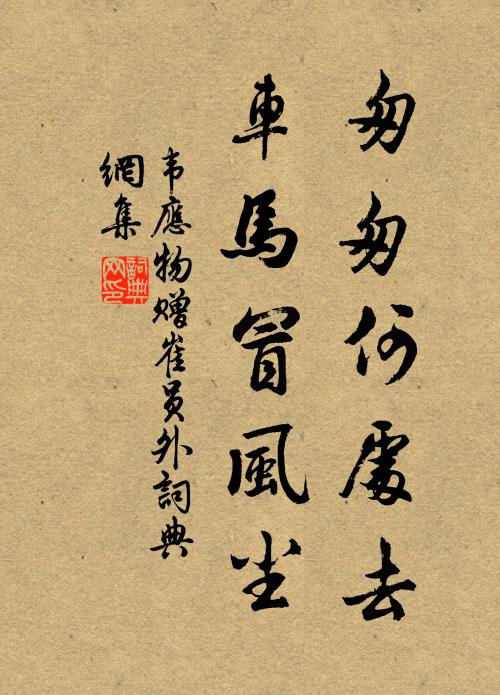 匆匆何處去
車馬冒風尘
韦應物赠崔員外詞典
網集
詞典
网印